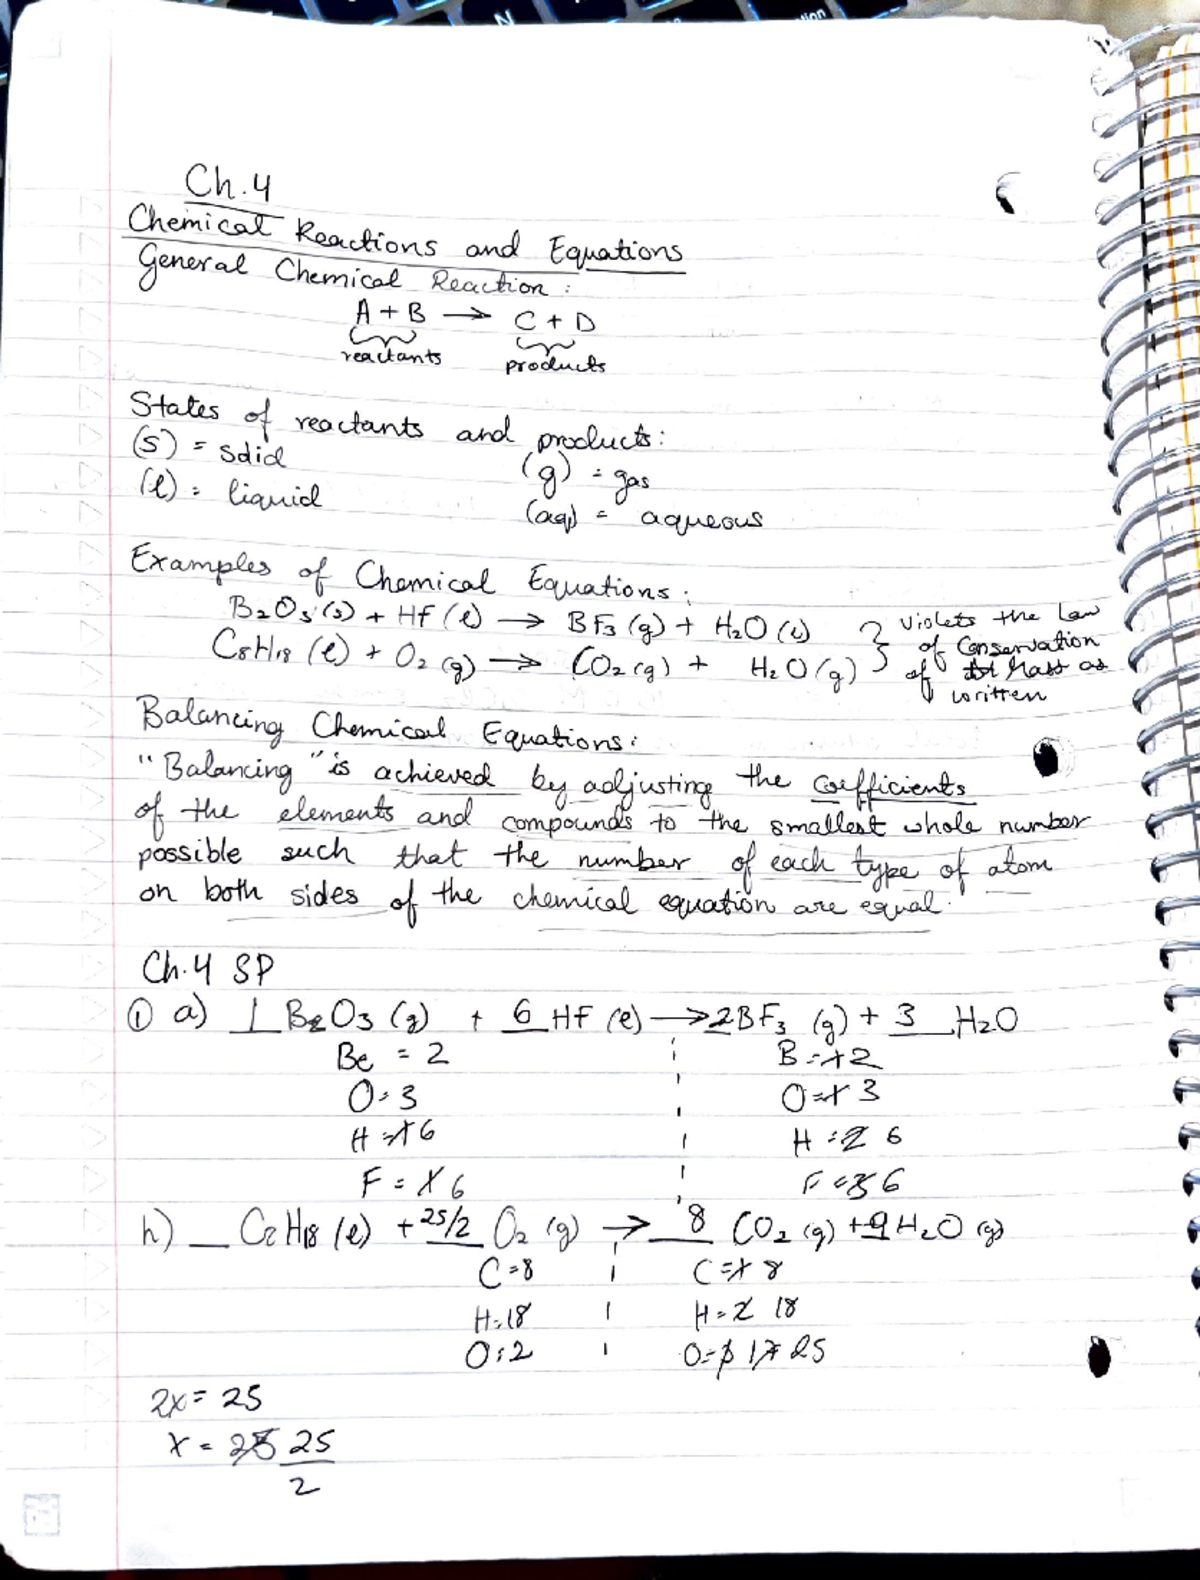 Ch.4
Chemical Reactions and Equations
General Chemical Reaction :
A + B → C + D
reactants products
States of reactants and products:
(s) = solid (g) = gas
(l) = liquid (aq) = aqueous
Examples of Chemical Equations:
B₂O₃ (s) + HF (l) → BF₃ (g) + H₂O (l) } Violets the Law
C₈H₁₈ (l) + O₂ (g) → CO₂ (g) + H₂O (g) of Conservation
of Mass as
written
Balancing Chemical Equations:
"Balancing" is achieved by adjusting the coefficients
of the elements and compounds to the smallest whole number
possible such that the number of each type of atom
on both sides of the chemical equation are equal.
Ch.4 SP
① a) 1 B₂O₃ (g) + 6 HF (l) → 2BF₃ (g) + 3 H₂O
Be = 2 B = 2
O = 3 O = 3
H = 6 H = 2 6
F = 6 F = 3 6
h) _ C₈H₁₈ (l) + 25/2 O₂ (g) → 8 CO₂ (g) + 9 H₂O (g)
C = 8 C = 8
H = 18 H = 2 18
O = 2 O = 17 25
2x = 25
x = 25/2